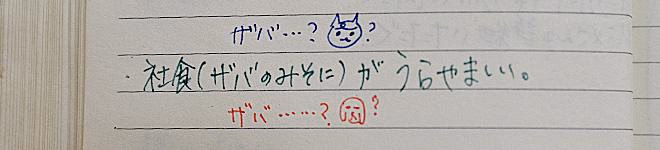 ザバ…??
・社食(ザバのみそに)が うらやましい。
ザバ……??